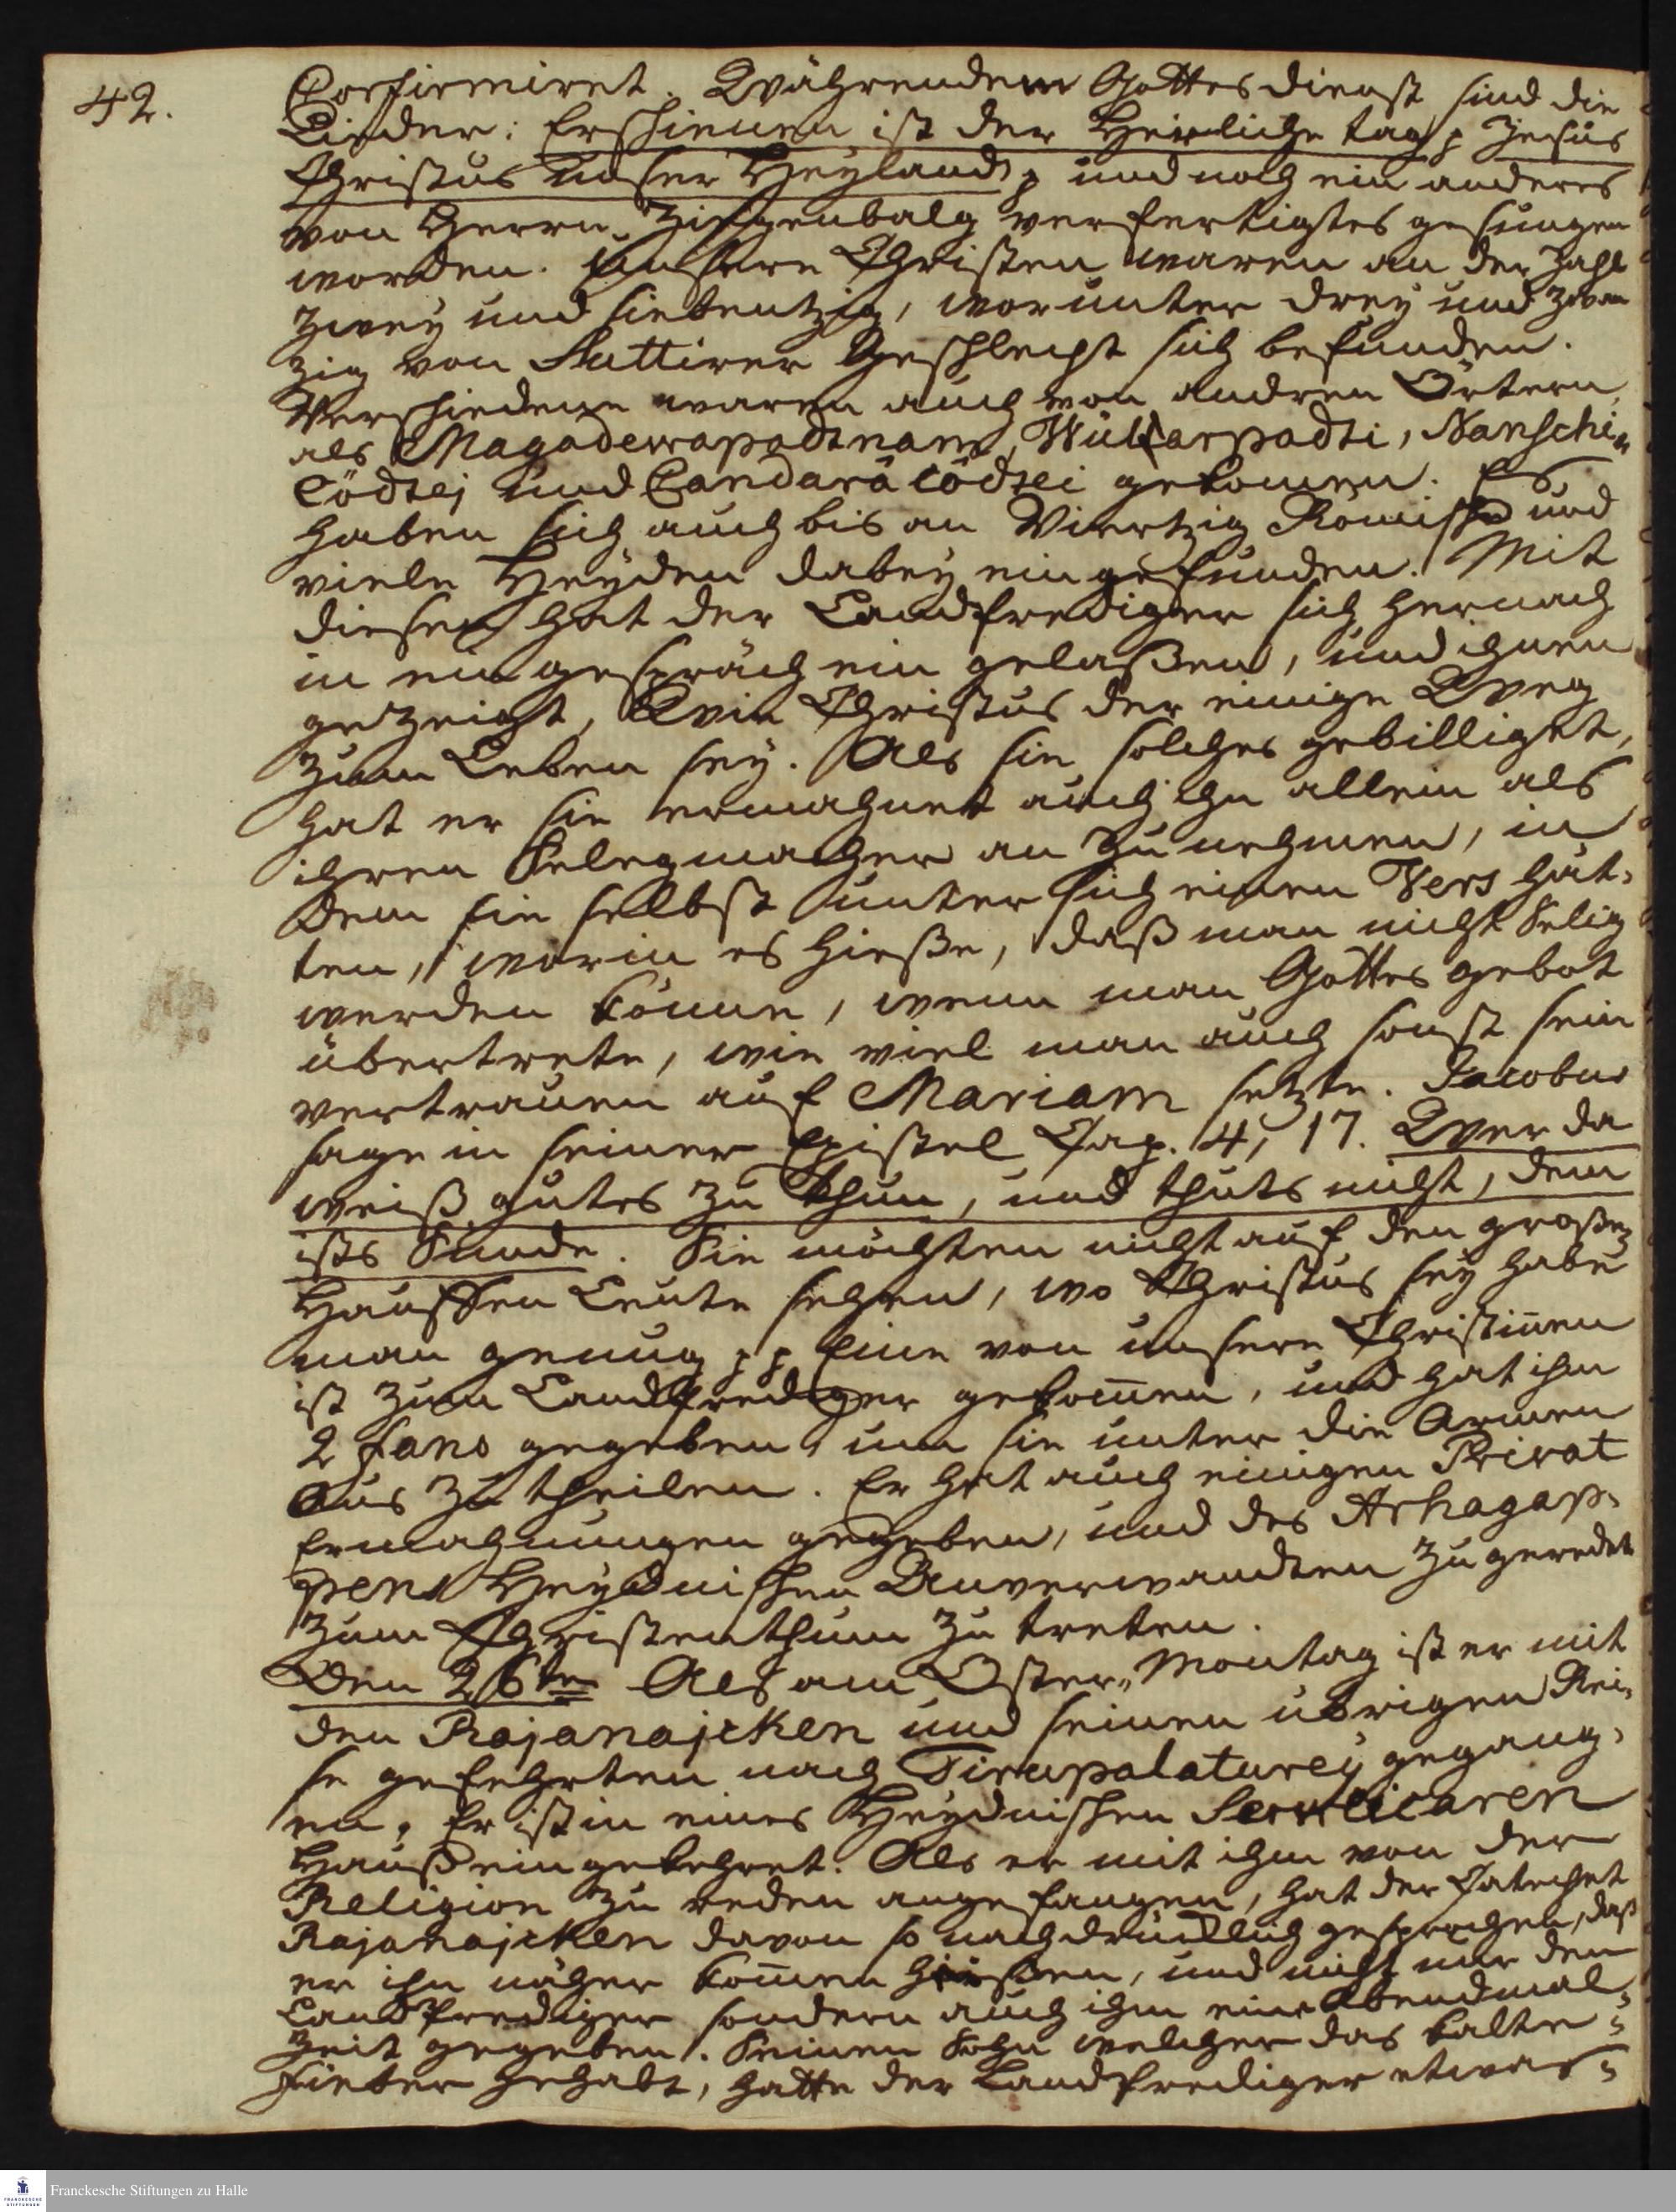 42.
Confirmiret. Währendem Gottesdienst sind die
Lieder: Erschienen ist der Herrliche tag p Jesus
Christus unser Heyland p und noch ein anderes
von Herrn Ziegenbalg verfertigtes gesungen
worden. Unsere Christen waren an der Zahl
Zwey und siebentzig, worunter drey und zwan
zig von Suttirer Geschlecht sich befunden.
Verschiedene waren auch von andren Örtern,
als Magadewapadtnam, Wül arpadti, Nanschi„
cödtej und Candaracödtei gekommen. Es
haben sich auch bis an Viertzig Römische und
viele Heyden dabey eingefunden. Mit
diesen hat der Landprediger sich hernach
in ein gespräch ein gelaßen, und ihnen
gezeigt, Wie Christus der einige Weg
zum Leben sey. Als sie solches gebilliget,
hat er sie ermahnet auch ihn allein als
ihren Seligmacher an zu nehmen, in
dem sie selbst unter sich einen Vers hät,
ten, worin es hieße, daß man nicht Selig
werden könne, wenn man Gottes gebot
übertrete, wie viel man auch sonst sein
vertrauen auf Mariam setzte. Jacobus
sage in seiner Epistel Cap. 4, 17. Wer da
weiß gutes zu thun, und thuts nicht, dem
ists Sünde. Sie möchten nicht auf den großen
Hauffen Leute sehen, wo Christus sey habe
man genug pp Eine von unsern Christinnen
ist zum Landprediger gekommen, und hat ihm
2 fano gegeben, um sie unter die Armen
Aus zu theilen. Er hat auch einigen Privat
Ermahnungen gegeben, und des Arhagap,
pens Heydnischen Anverwandten zugeredet
zum Christenthum zu treten.
Den 26ten Als am Oster„Montag ist er mit
den Rajanajcken und seinen übrigen Rei,
se gefehrten nach Tirupalaturey gegang,
en. Er ist in eines Heydnischen Serwicaren
Hauß eingekehret. Als er mit ihm von der
Religion zu reden angefangen, hat der Catechet
Rajanajcken davon so nachdrücklich gesprochen, daß
er ihn näher kommen hießen, und nicht nur dem
Landprediger sondern auch ihm eine Abendmal„
Zeit gegeben. Seinem Sohn welcher das kalte„
Fieber gehabt, hatte der Landprediger etwas„
FRANCKESCHE
STIFTUNGEN
Franckesche Stiftungen zu Halle